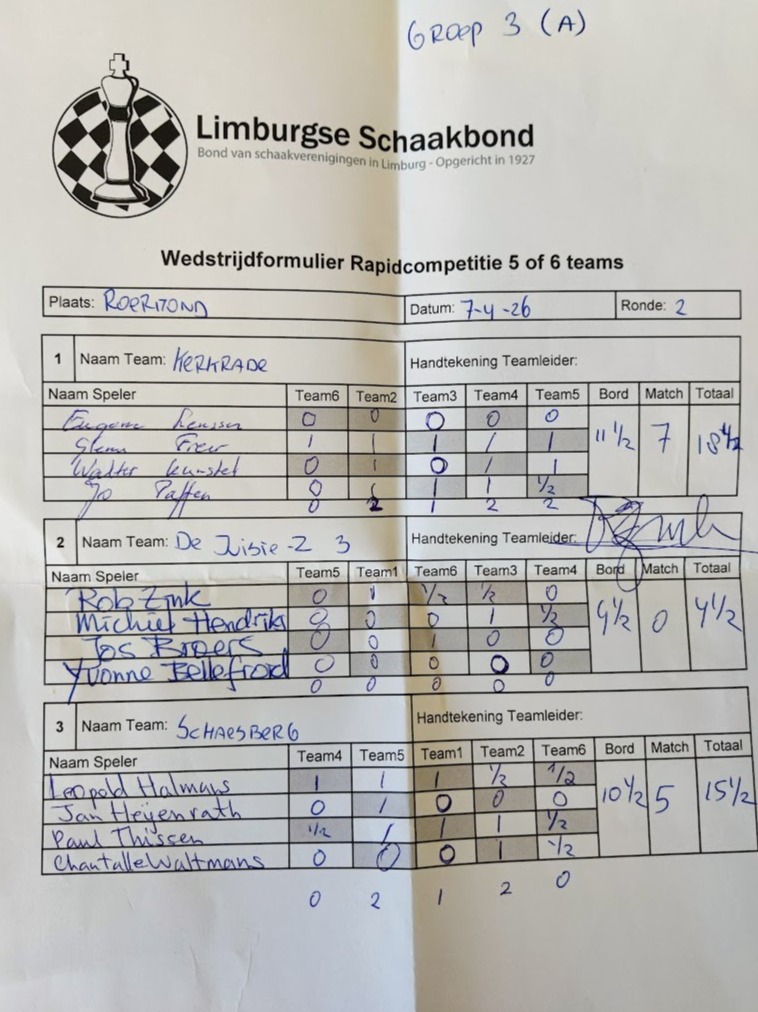 Groep 3 (A)
Limburgse Schaakbond
Bond van schaakverenigingen in Limburg - Opgericht in 1927
Wedstrijdformulier Rapidcompetitie 5 of 6 teams
Plaats: Roermond Datum: 7-4-26 Ronde: 2
1 Naam Team: Kerkrade Handtekening Teamleider:
Naam Speler Team6 Team2 Team3 Team4 Team5 Bord Match Totaal
Eugene 0 0 0 0 0
Glenn 1 1 1 1 1 11 1/2 7 18 1/2
Walter 0 1 0 1 1
Jo Paffen 0 1 1 1 1/2
0 2 1 2 2
2 Naam Team: De Juisie-Z 3 Handtekening Teamleider:
Naam Speler Team5 Team1 Team6 Team3 Team4 Bord Match Totaal
Rob Zink 0 1 1/2 1/2 0
Michiel Hendriks 0 0 0 1 1/2 4 1/2 0 4 1/2
Jos Broers 0 0 1 0 0
Yvonne Bellefroid 0 0 0 0 0
0 0 0 0 0
3 Naam Team: Schaesberg Handtekening Teamleider:
Naam Speler Team4 Team5 Team1 Team2 Team6 Bord Match Totaal
Leopold Halmans 1 1 1 1/2 1/2
Jan Heijenrath 0 1 0 0 0 10 1/2 5 15 1/2
Paul Thissen 1/2 1 1 1 1/2
Chantalle Waltmans 0 0 0 1 1/2
0 2 1 2 0